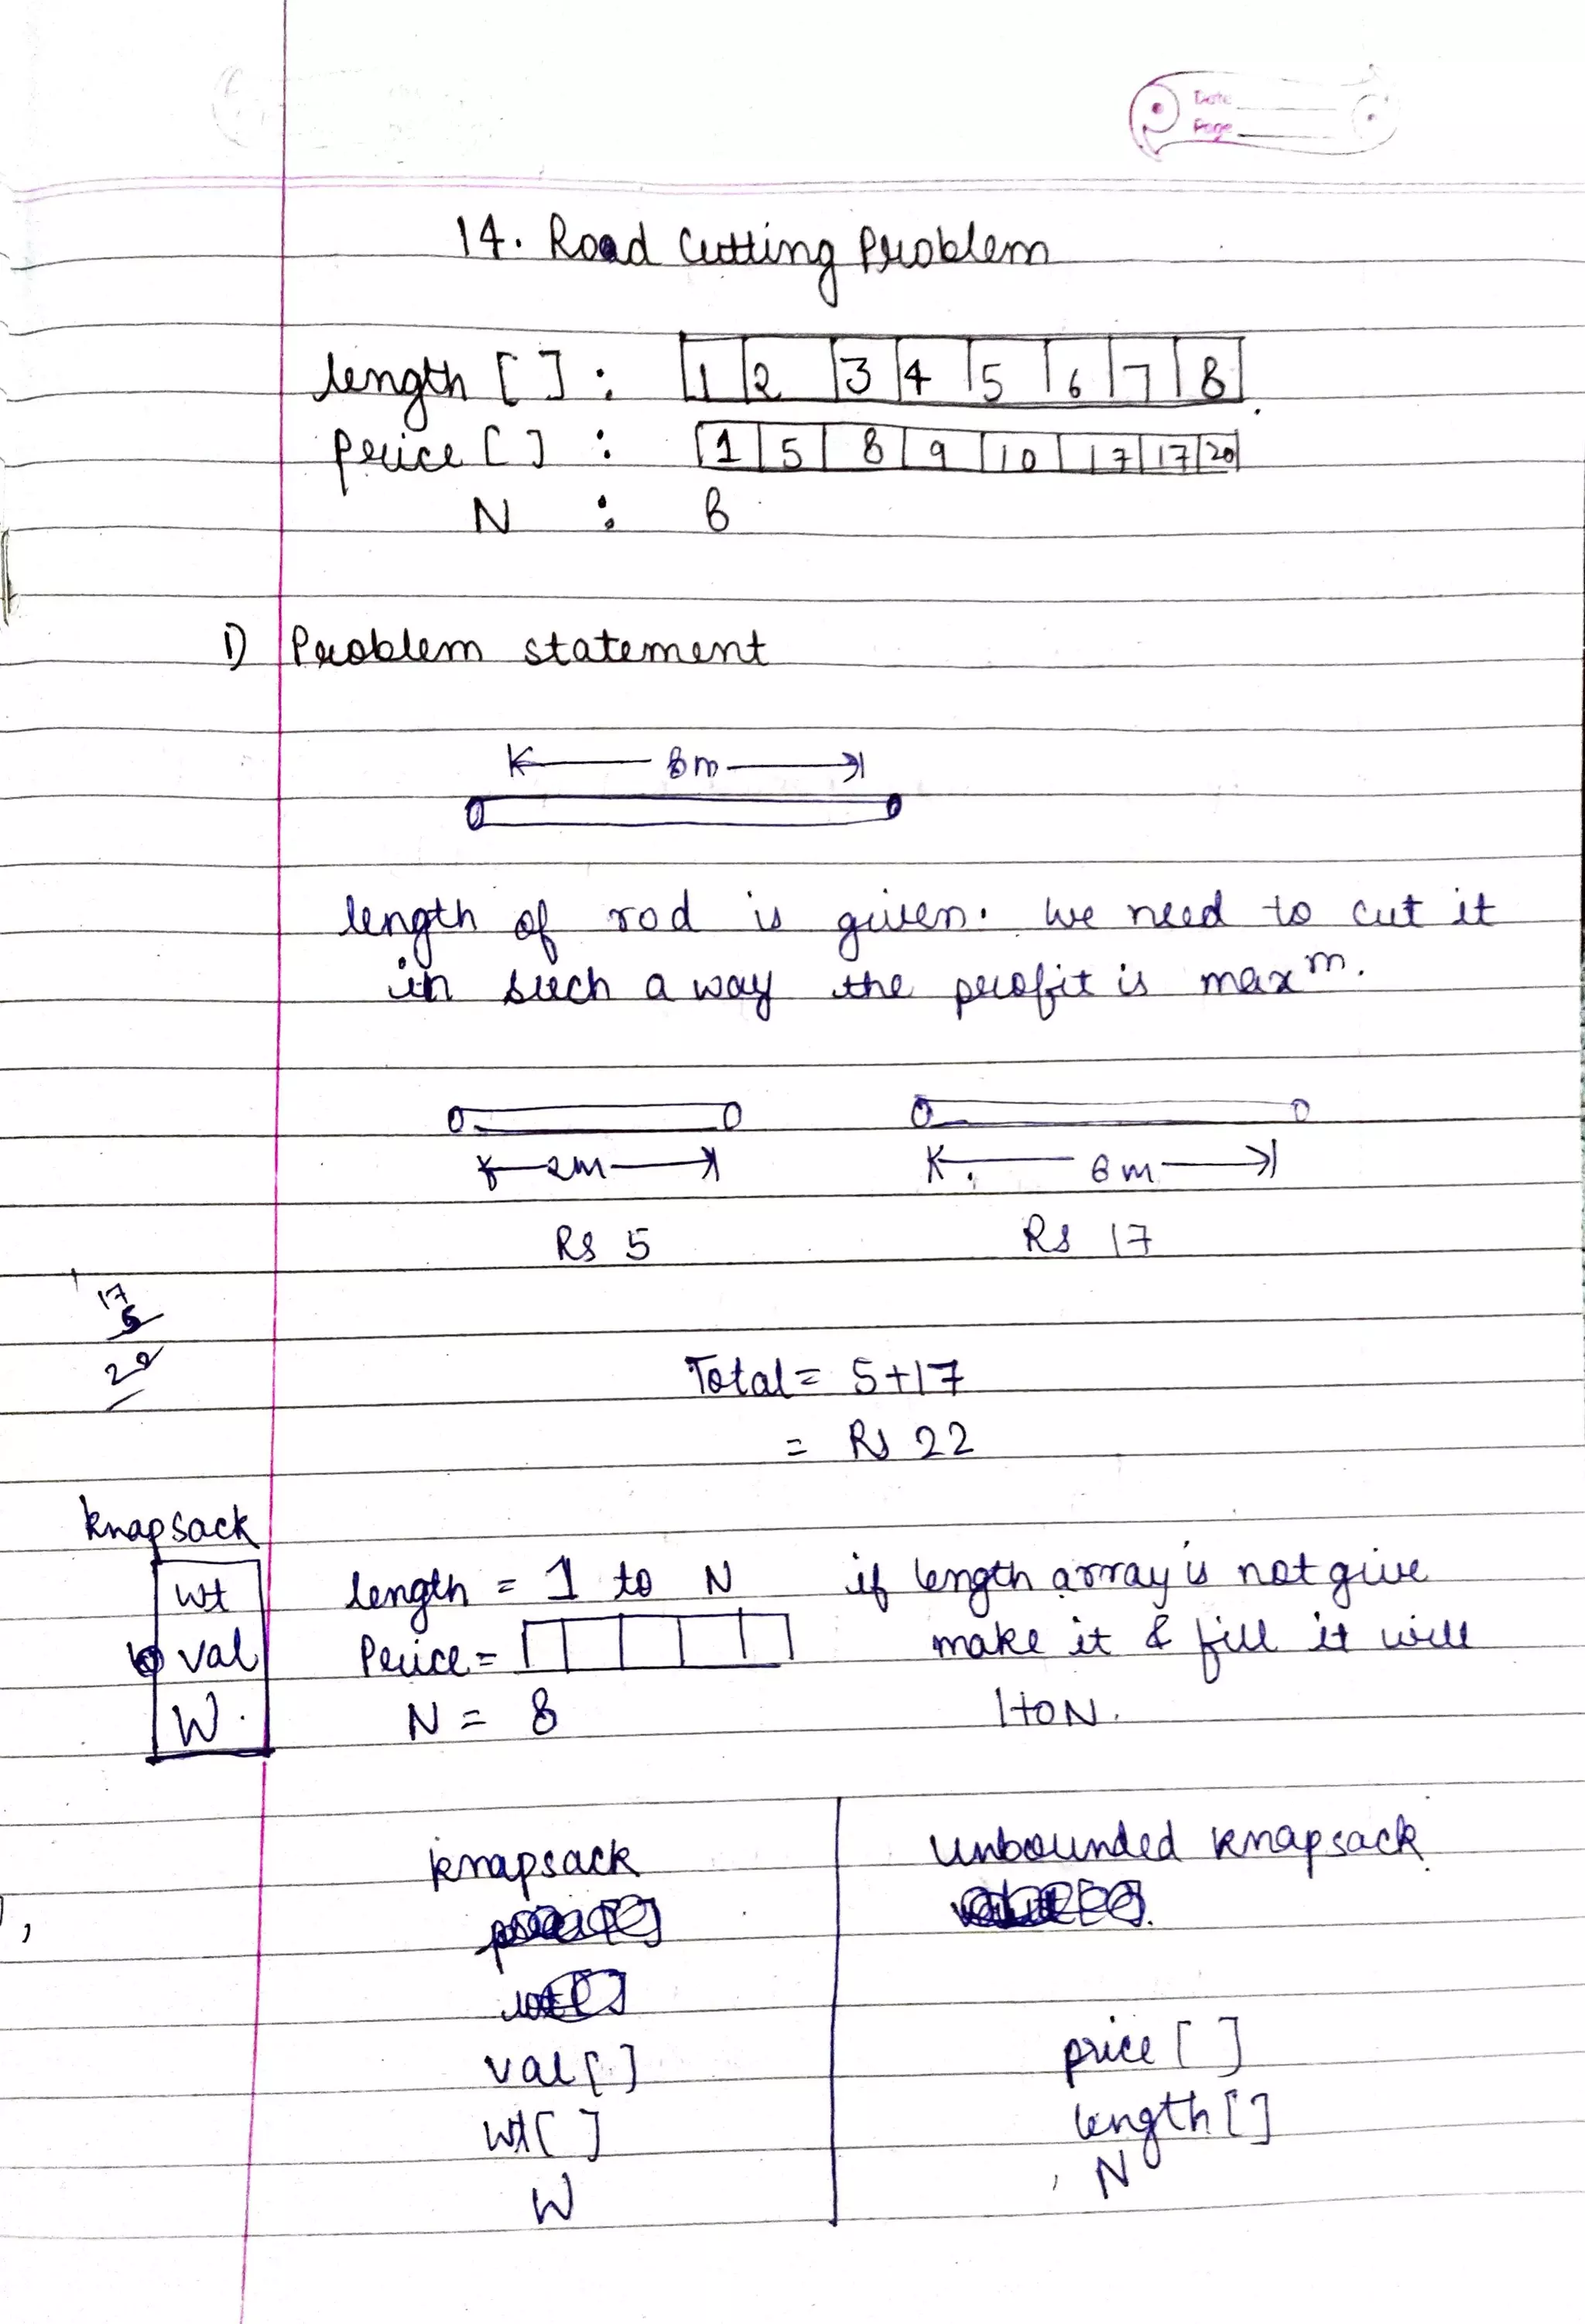 Date
Page
14. Road Cutting Problem
length [ ] : 1 2 3 4 5 6 7 8
Price [ ] : 1 5 8 9 10 17 17 20
N : 8
1) Problem statement
8m
length of rod is given. We need to cut it
in such a way the profit is maxm.
2m 6m
Rs 5 Rs 17
17
5
22
Total = 5+17
= Rs 22
knapsack
wt length = 1 to N if length array is not give
val Price = make it & fill it will
W N = 8 1 to N.
knapsack unbounded knapsack
val [ ] price [ ]
wt [ ] length [ ]
W N